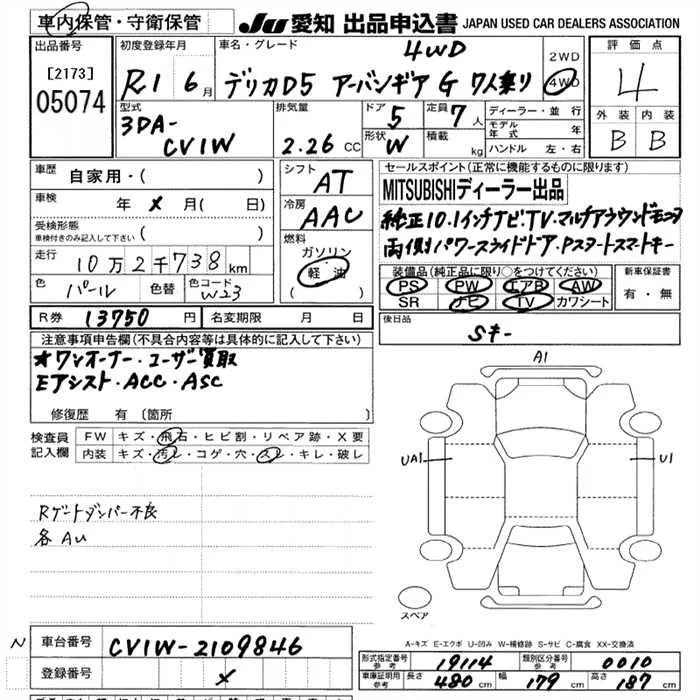 車内保管・守衛保管
JU 愛知 出品申込書 JAPAN USED CAR DEALERS ASSOCIATION
出品番号
[2173]
05074
初度登録年月
R1 6月
車名・グレード
4WD
デリカD5 アーバンギア G 7人乗り
2WD
4WD
評価点
4
外装 内装
B B
型式
3DA-
CV1W
排気量
2.26 CC
ドア
5
定員
7人
形状
W
積載
kg
ディーラー・並行
モデル年式 年
ハンドル 左・右
車歴
自家用・( )
車検
年 メ 月( 日)
受検形態
車検付きのみ記入して下さい ( )
走行
10万2千738km
色
パール
色替
色コード
W23
シフト
AT
冷房
AAC
燃料
ガソリン
軽油
( )
セールスポイント(正常に機能するものに限ります)
MITSUBISHIディーラー出品
純正10.1インチナビTV.マルチアラウンドモニタ
両側パワースライドドア.Pスタートスマートキー
装備品(純正品に限り○をつけてください)
PS PW エアB AW
SR ナビ TV カワシート
新車保証書
有・無
R券 13750円 名変期限 月 日
後日品
Sキー
注意事項申告欄(不具合内容等は具体的に記入して下さい)
★ワンオーナー・ユーザー買取
Eアシスト・ACC・ASC
修復歴 有(箇所
検査員
記入欄
FW キズ・飛石・ヒビ割・リペア跡・X要
内装 キズ・汚レ・コゲ・穴・スレ・キレ・破レ
Rゲートダンパー不良
各AU
A1
UA1
U1
スペア
A-キズ E-エクボ U-凹み W-補修跡 S-サビ C-腐食 XX-交換済
N
車台番号
CV1W-2109846
登録番号
メ
形式指定番号
参考
19114
類別区分番号
参考
0010
車庫証明用
参考
長さ 480cm 幅 179cm 高さ 187cm